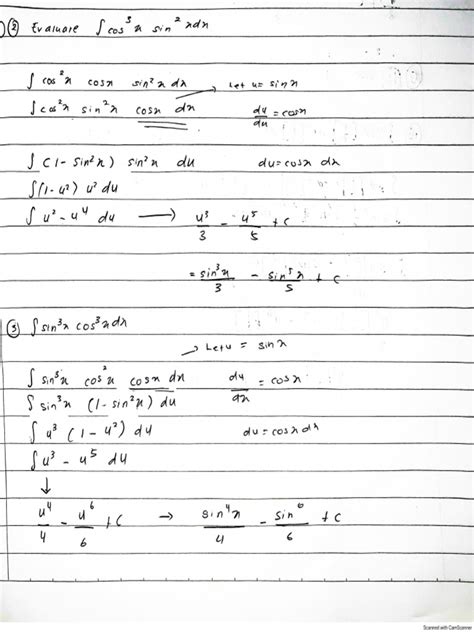 ② Evaluate ∫cos³x sin²x dx
∫ cos²x cosx sin²x dx → Let u = sinx
∫ cos²x sin²x cosx dx du/du = cosx
∫ (1 - sin²x) sin²x du du = cosx dx
∫(1 - u²) u² du
∫ u² - u⁴ du → u³/3 - u⁵/5 + c
= sin³x/3 - sin⁵x/5 + c
③ ∫ sin³x cos³x dx
→ Let u = sinx
∫ sin³x cos²x cosx dx du/dx = cosx
∫ sin³x (1 - sin²x) du
∫ u³ (1 - u²) du du = cosx dx
∫ u³ - u⁵ du
↓
u⁴/4 - u⁶/6 + c → sin⁴x/4 - sin⁶/6 + c
Scanned with CamScanner